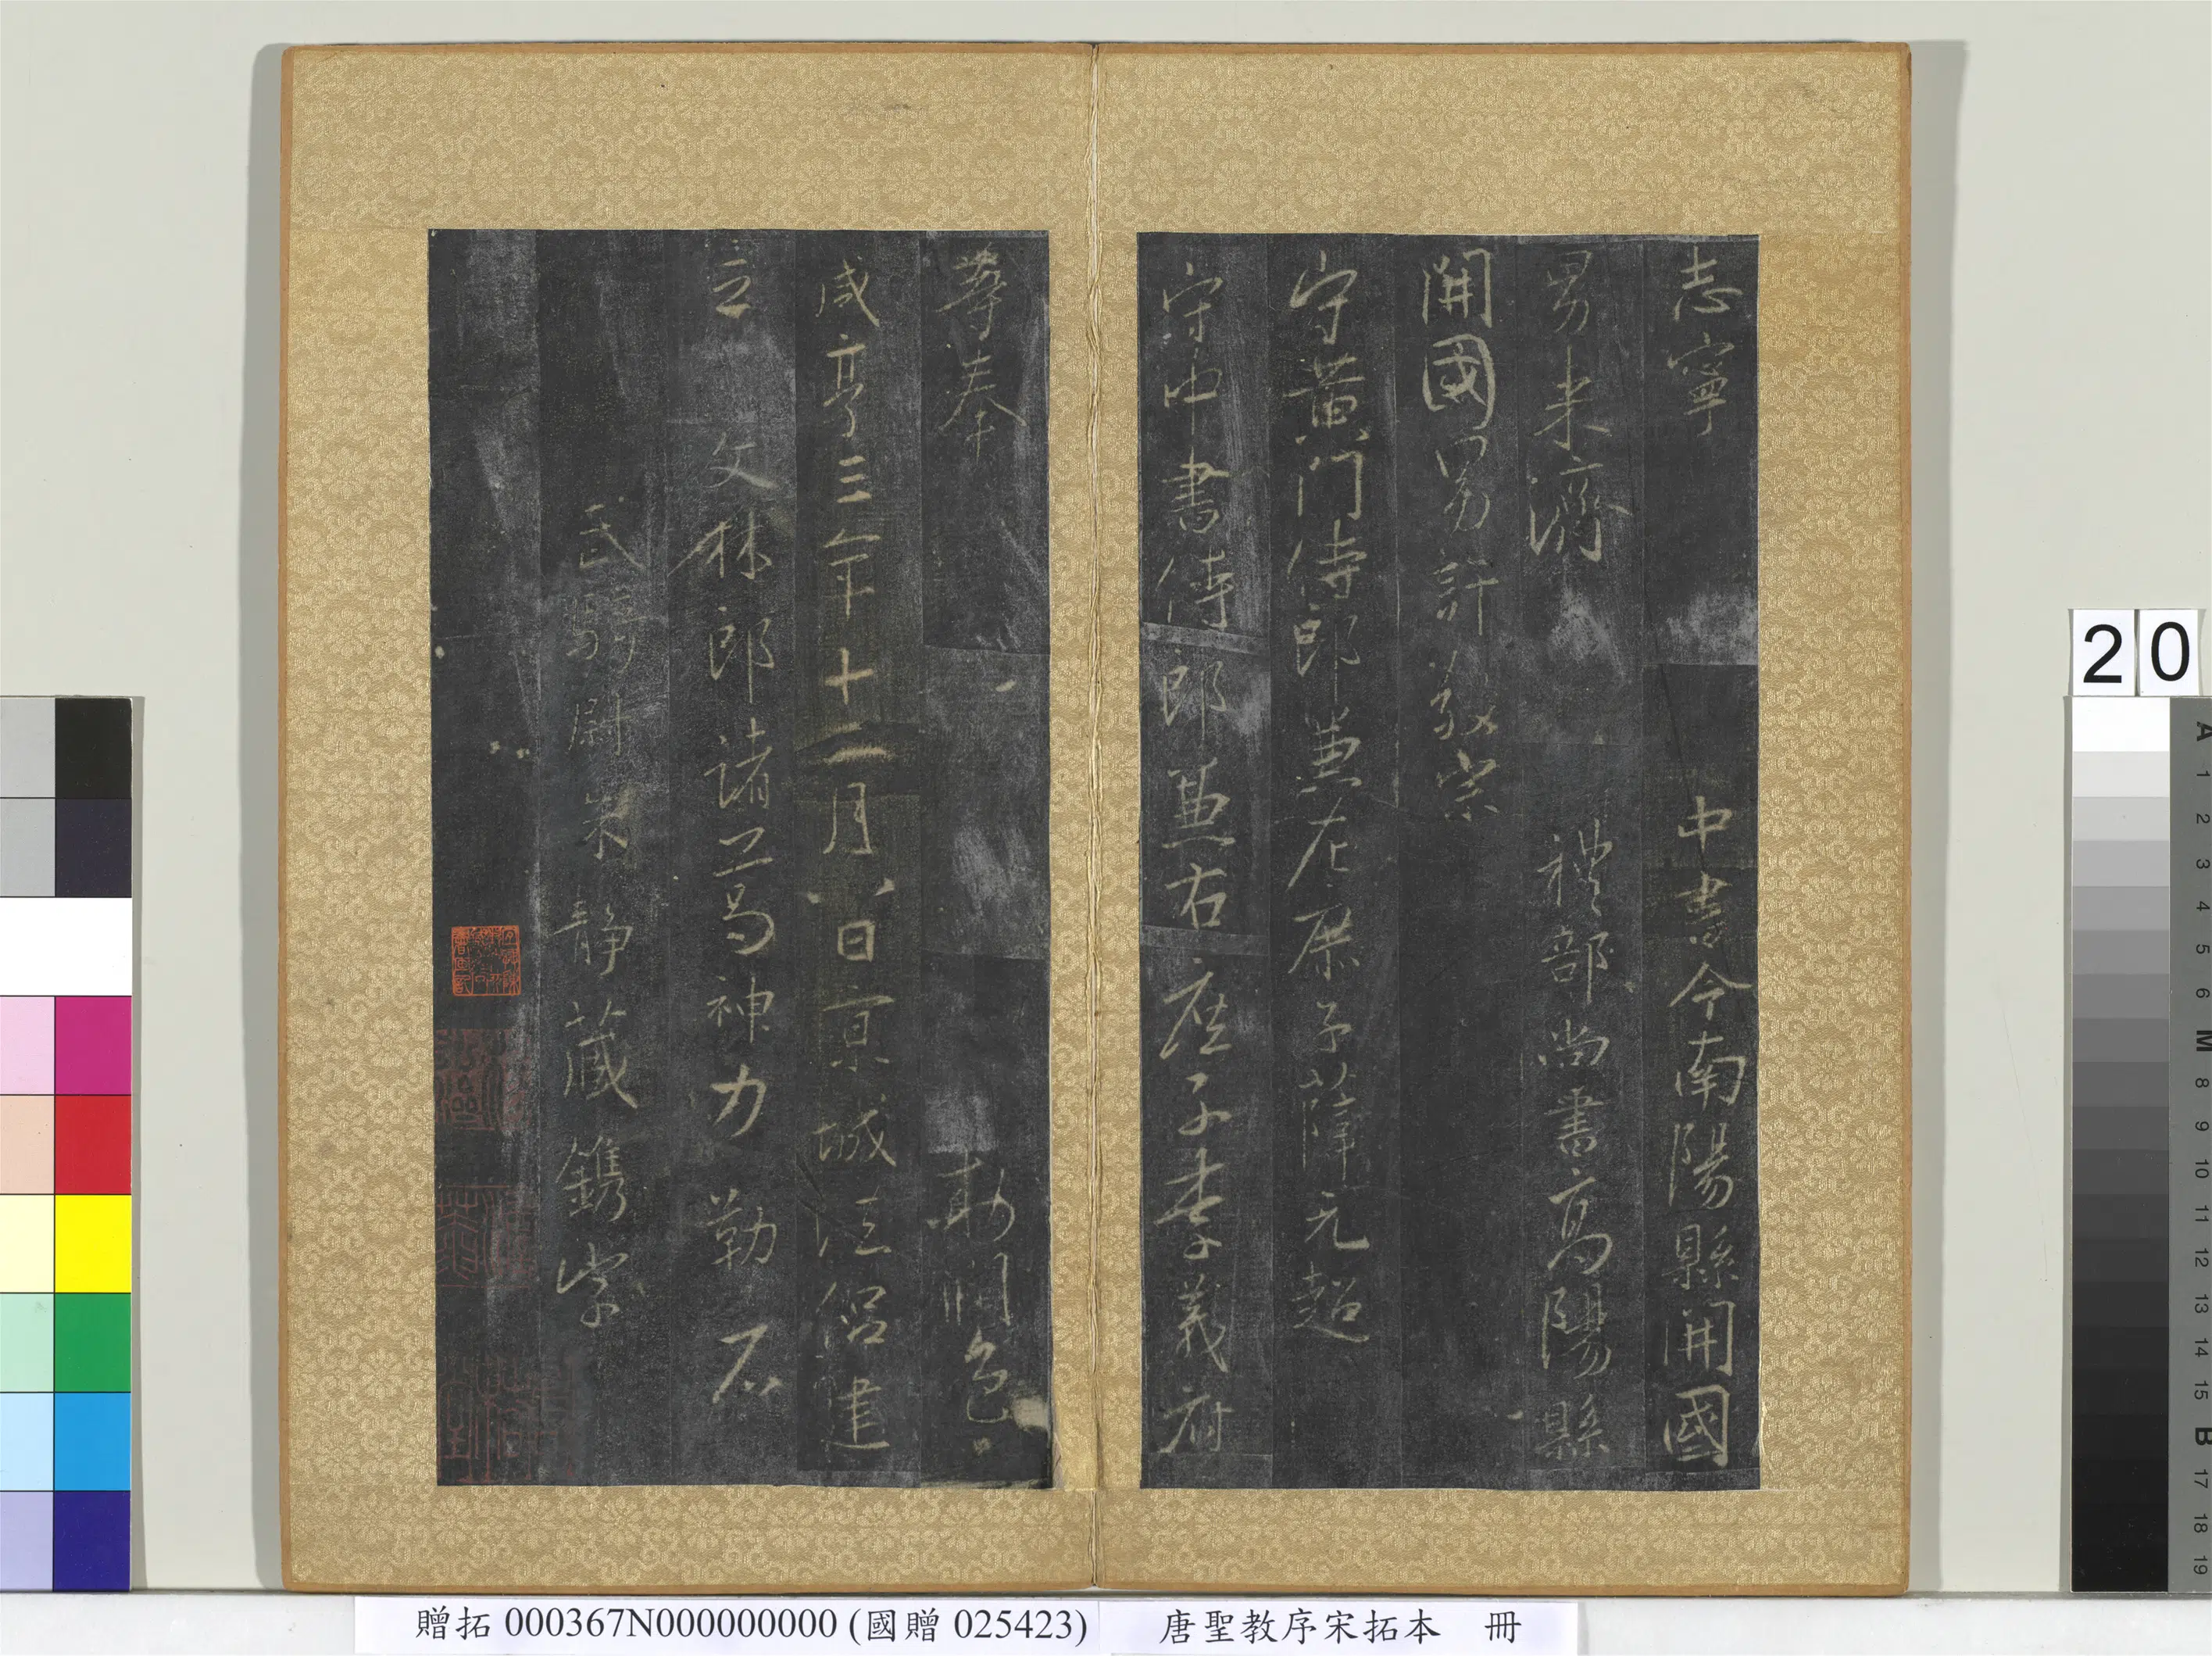 志寧 中書令南陽縣開國
男来濟 禮部尚書高陽縣
開國男許敬宗
守黃門侍郎兼左庶子薛元超
守中書侍郎兼右庶子李義府
等奉 敕潤色
咸亨三年十二月八日京城法侶建
立 文林郎諸葛神力勒石
武騎尉朱靜藏鐫字
20
A
1
2
3
4
5
6
M
8
9
10
11
12
13
14
15
B
17
18
19
贈拓 000367N000000000 (國贈 025423) 唐聖教序宋拓本 冊